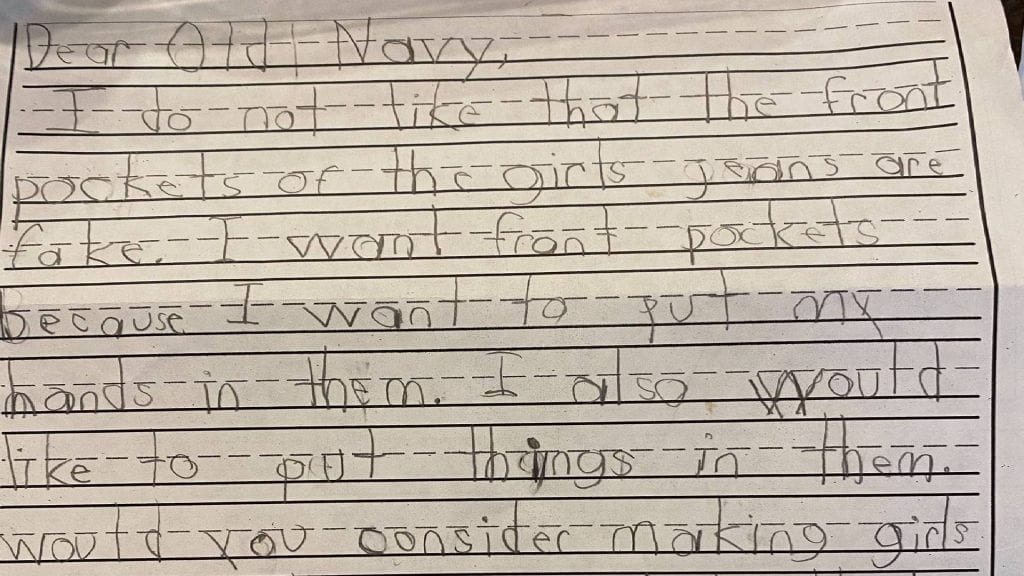 Dear Old Navy,
I do not like that the front
pockets of the girls jeans are
fake. I want front pockets
because I want to put my
hands in them. I also would
like to put things in them.
would you consider making girls